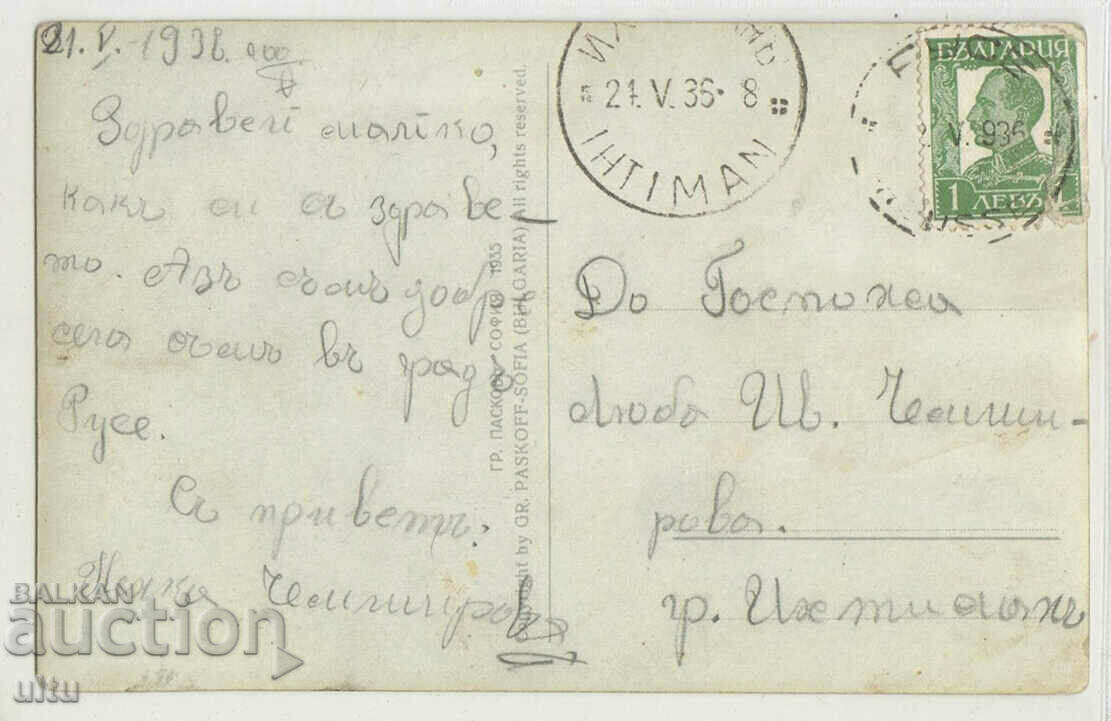 21. V. 1936 год
Здравей майко,
какъ си съ здраве-
то. Азъ съмъ добре
сега съмъ въ градъ
Русе.
Съ приветъ.
Чилингиров
ГР. ПАСКОВЪ СОФИЯ 1935
Copyright by GR. PASKOFF-SOFIA (BULGARIA) All rights reserved.
21. V. 36 · 8
IHTIMAN
БЪЛГАРИЯ
V. 936
1 ЛЕВЪ
До Госпожа
Люба Ив. Чилинги-
рова.
гр. Ихтиманъ
BALKAN
auction
ultu